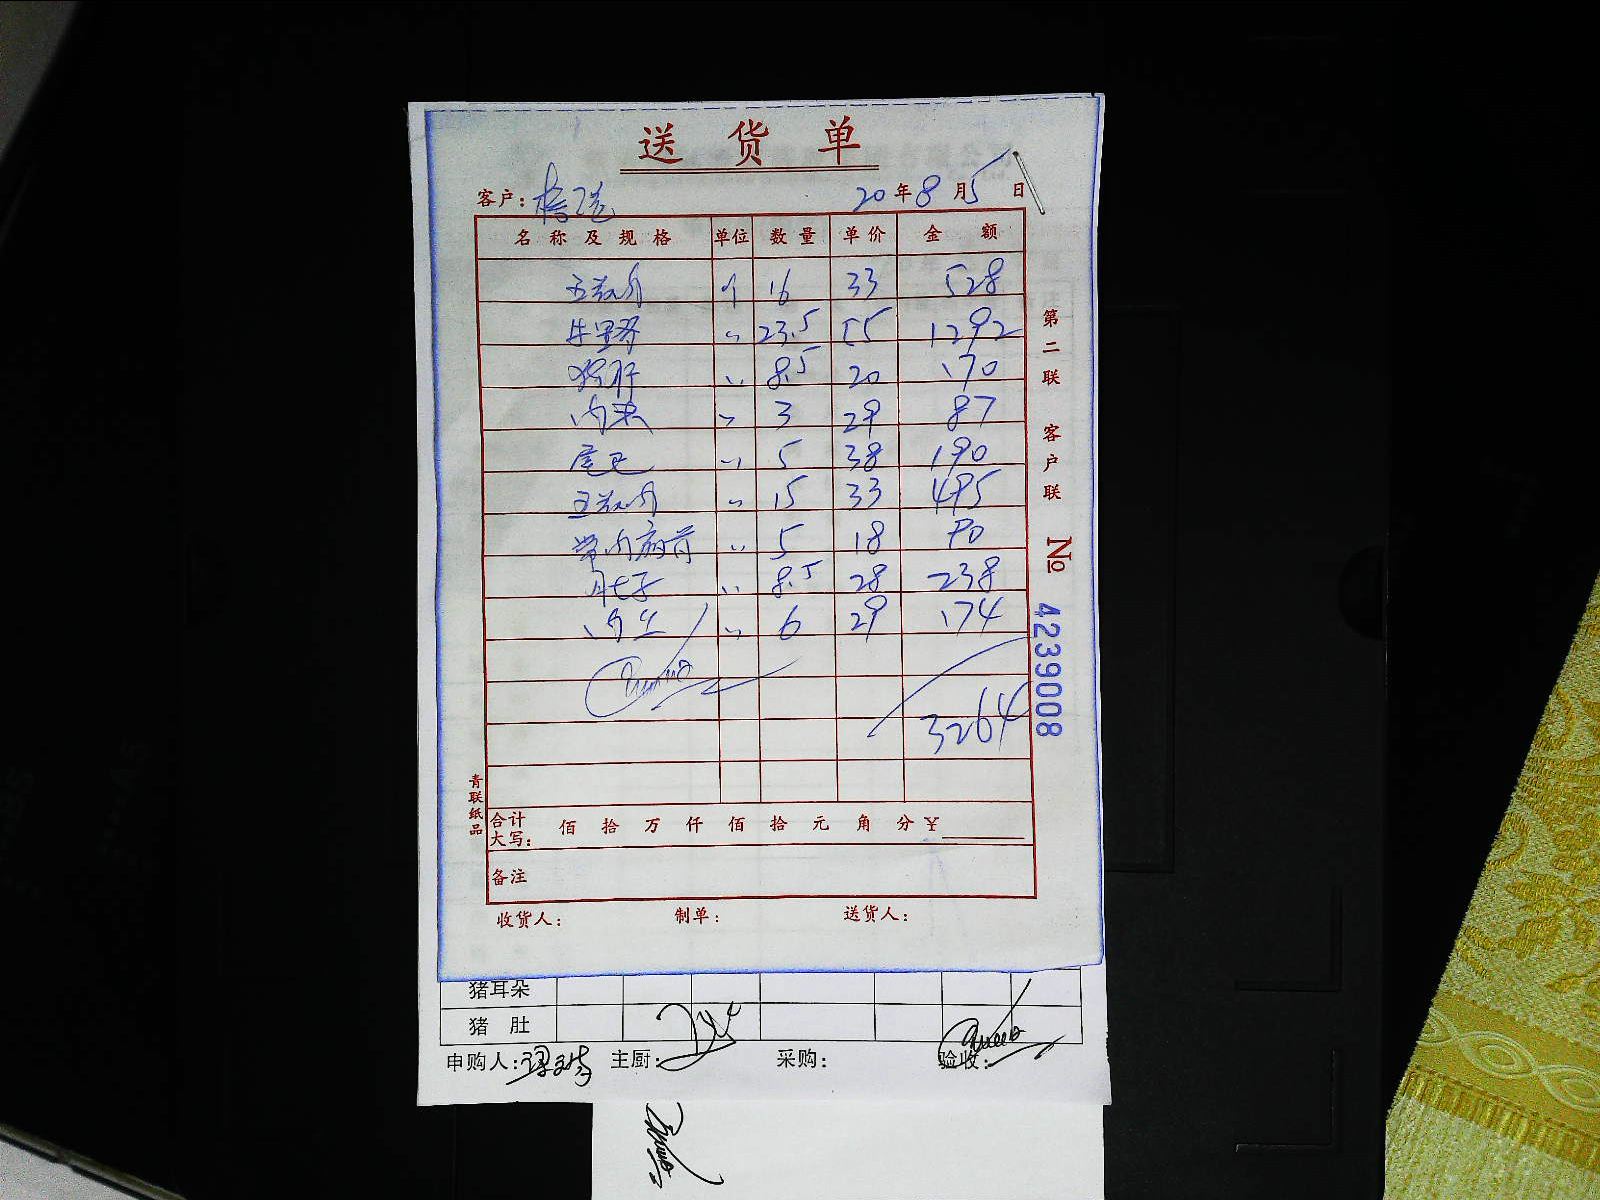 送货单
客户: 20年8月5日
名称及规格 单位 数量 单价 金额
五花肉 个 16 33 528
牛里脊 〃 23.5 55 1292
猪肝 〃 8.5 20 170
内 〃 3 29 87
尾巴 〃 5 38 190
五花肉 〃 15 33 495
〃 5 18 90
肚子 〃 8.5 28 238
肉丝 〃 6 29 174
3264
合计大写: 佰 拾 万 仟 佰 拾 元 角 分 ¥
备注
收货人: 制单: 送货人:
第二联 客户联 № 4239008
青联纸品
猪耳朵
猪 肚
申购人: 主厨: 采购: 验收: